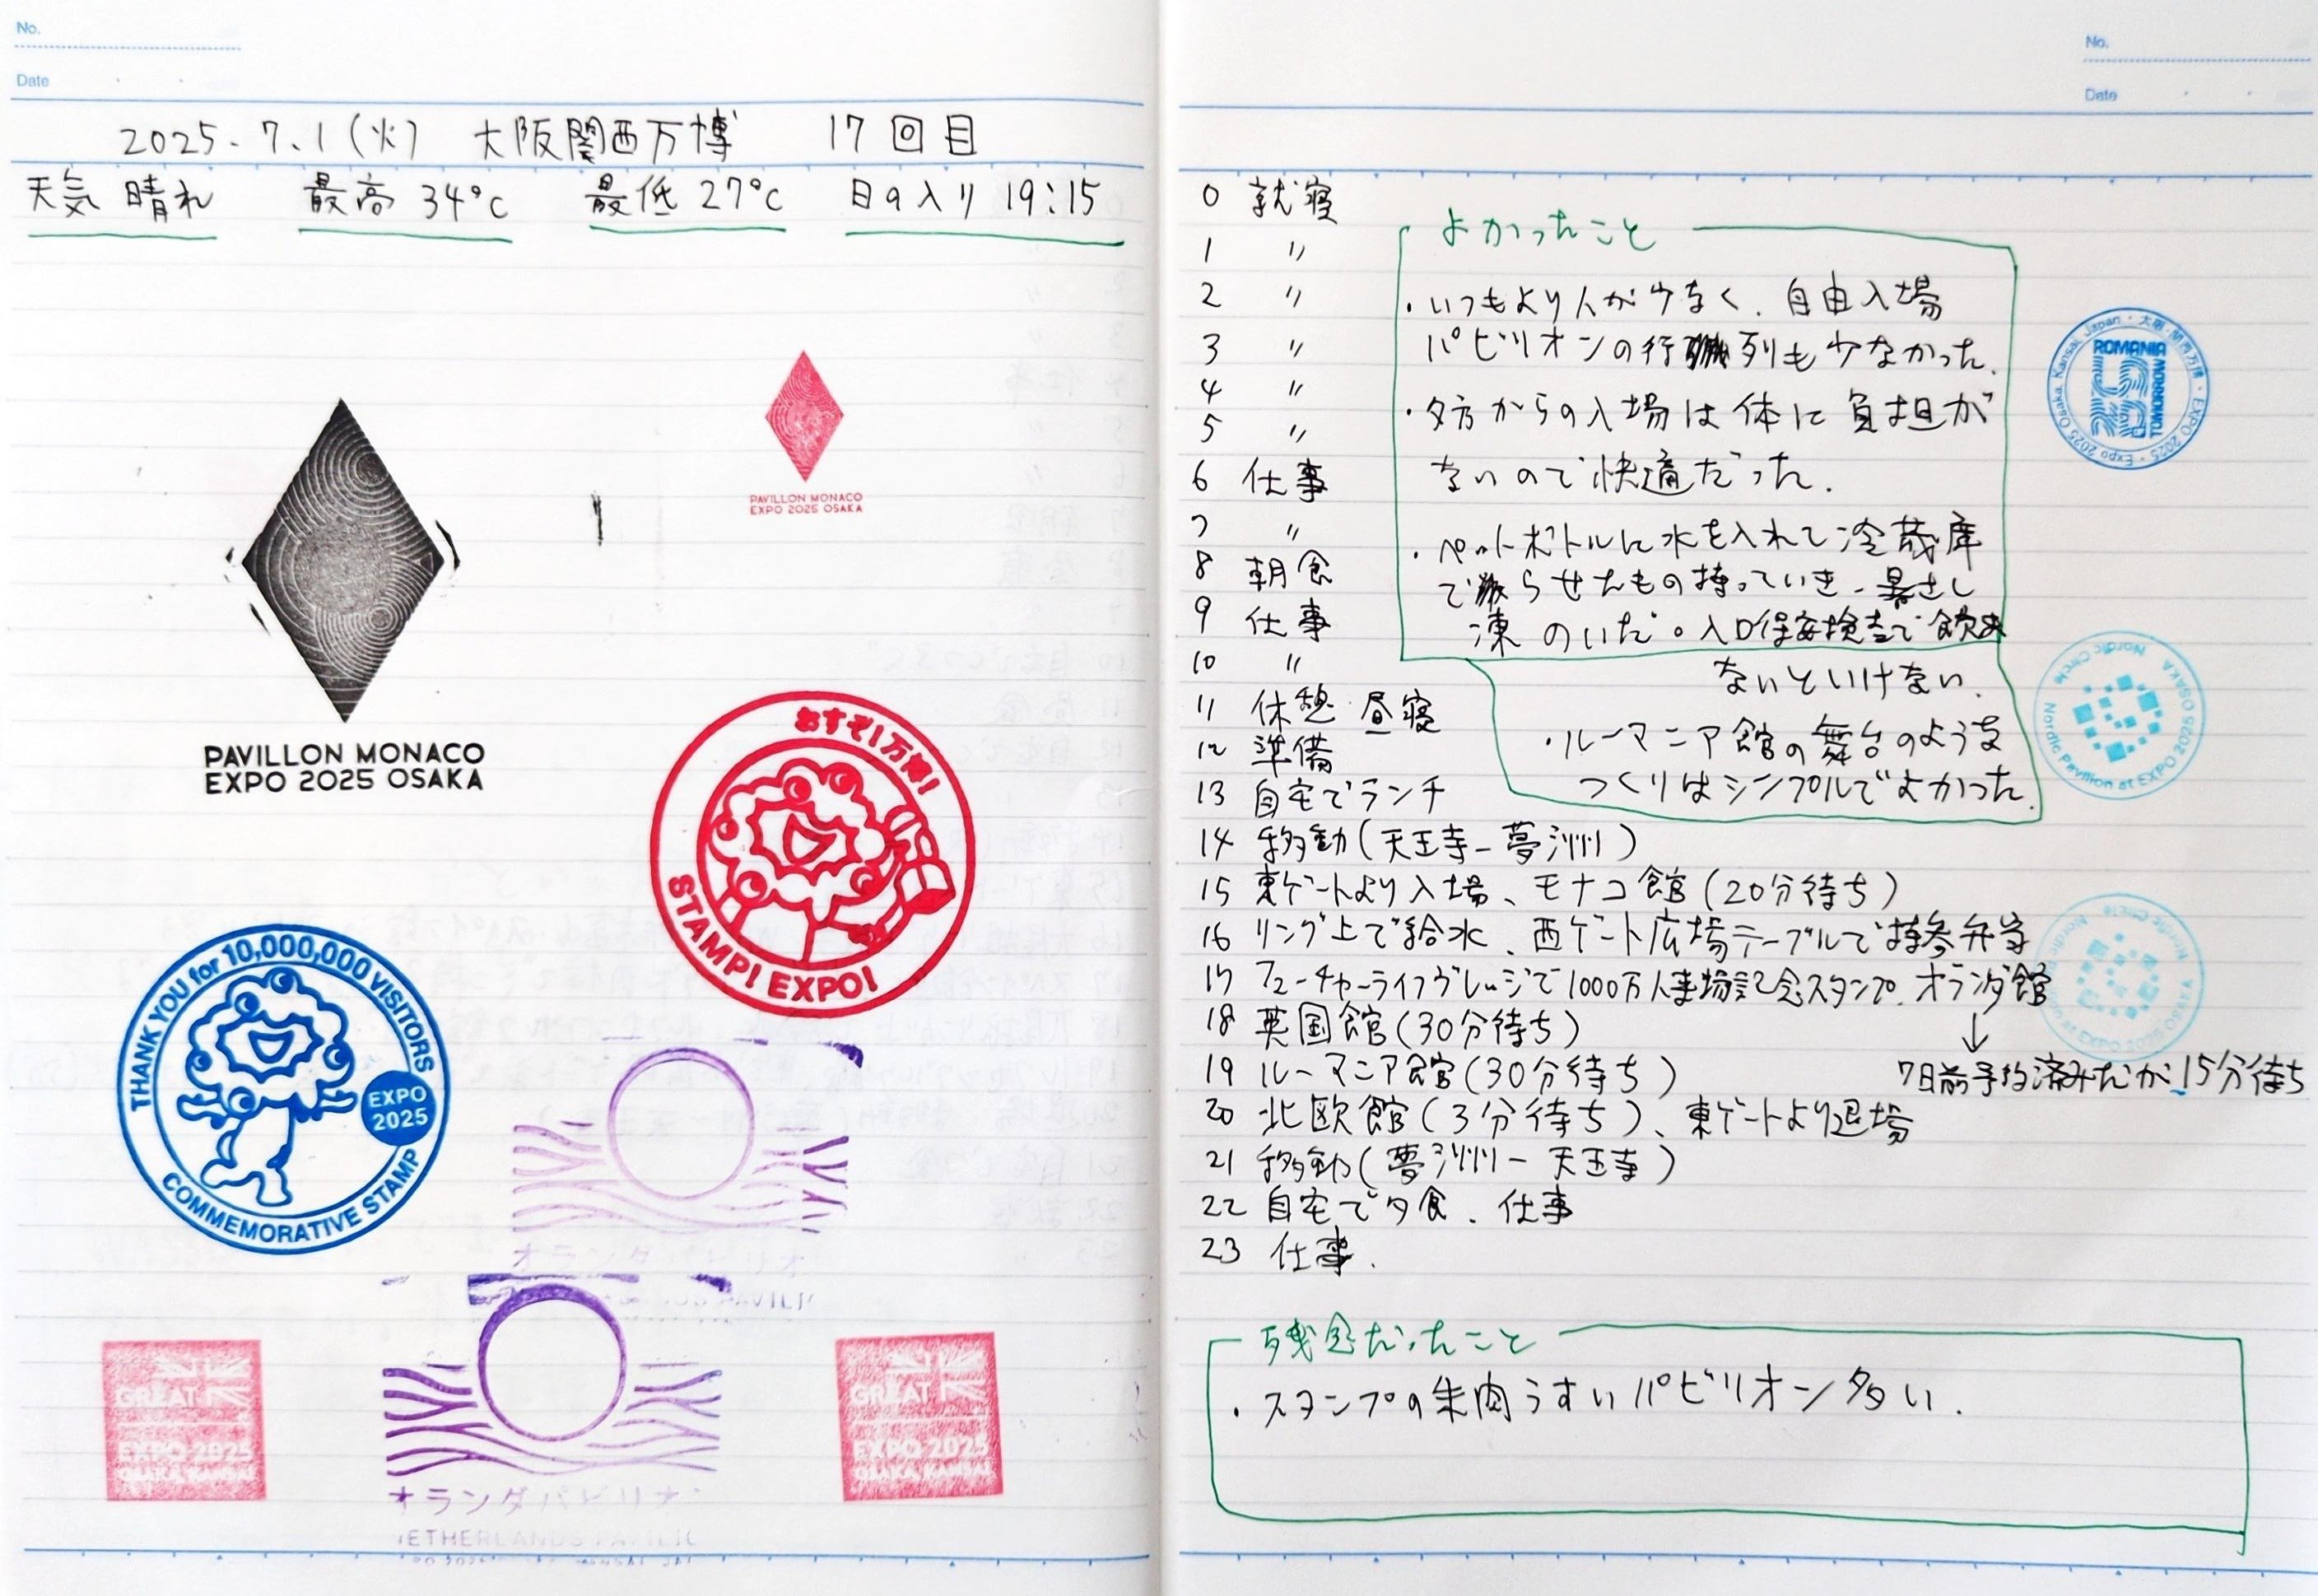 No.
Date
2025.7.1(火) 大阪関西万博 17回目
天気 晴れ 最高 34℃ 最低 27℃ 日の入り 19:15
PAVILLON MONACO
EXPO 2025 OSAKA
PAVILLON MONACO
EXPO 2025 OSAKA
おすぞ!万博!
STAMP! EXPO!
THANK YOU for 10,000,000 VISITORS
EXPO
2025
COMMEMORATIVE STAMP
オランダパビリオ
PAVILI
GREAT
EXPO 2025
OSAKA, KANSAI
オランダパビリオン
NETHERLANDS PAVILIO
GREAT
EXPO 2025
OSAKA, KANSAI
No.
Date
0 就寝
1 〃
2 〃
3 〃
4 〃
5 〃
6 仕事
7 〃
8 朝食
9 仕事
10 〃
11 休憩 昼寝
12 準備
13 自宅でランチ
14 移動(天王寺-夢洲)
15 東ゲートより入場、モナコ館(20分待ち)
16 リング上で給水、西ゲート広場テーブルで持参弁当
17 フューチャーライフヴィレッジで1000万人来場記念スタンプ、オランダ館
↓
7日前予約済みだが15分待ち
18 英国館(30分待ち)
19 ルーマニア館(30分待ち)
20 北欧館(3分待ち)、東ゲートより退場
21 移動(夢洲-天王寺)
22 自宅で夕食、仕事
23 仕事.
よかったこと
・いつもより人が少なく、自由入場
パビリオンの行列も少なかった.
・夕方からの入場は体に負担が
ないので快適だった.
・ペットボトルに水を入れて冷蔵庫
で凍らせたもの持っていき、暑さし
のいだ。入口保安検査で飲ま
ないといけない.
・ルーマニア館の舞台のような
つくりはシンプルでよかった.
残念だったこと
・スタンプの朱肉うすいパビリオン多い.
Osaka, Kansai, Japan・大阪・関西万博・EXPO 2025
ROMANIA
TOMORROW
Nordic Circle
Nordic Pavilion at EXPO 2025 OSAKA
Nordic Circle
at EXPO 2025 OSAKA